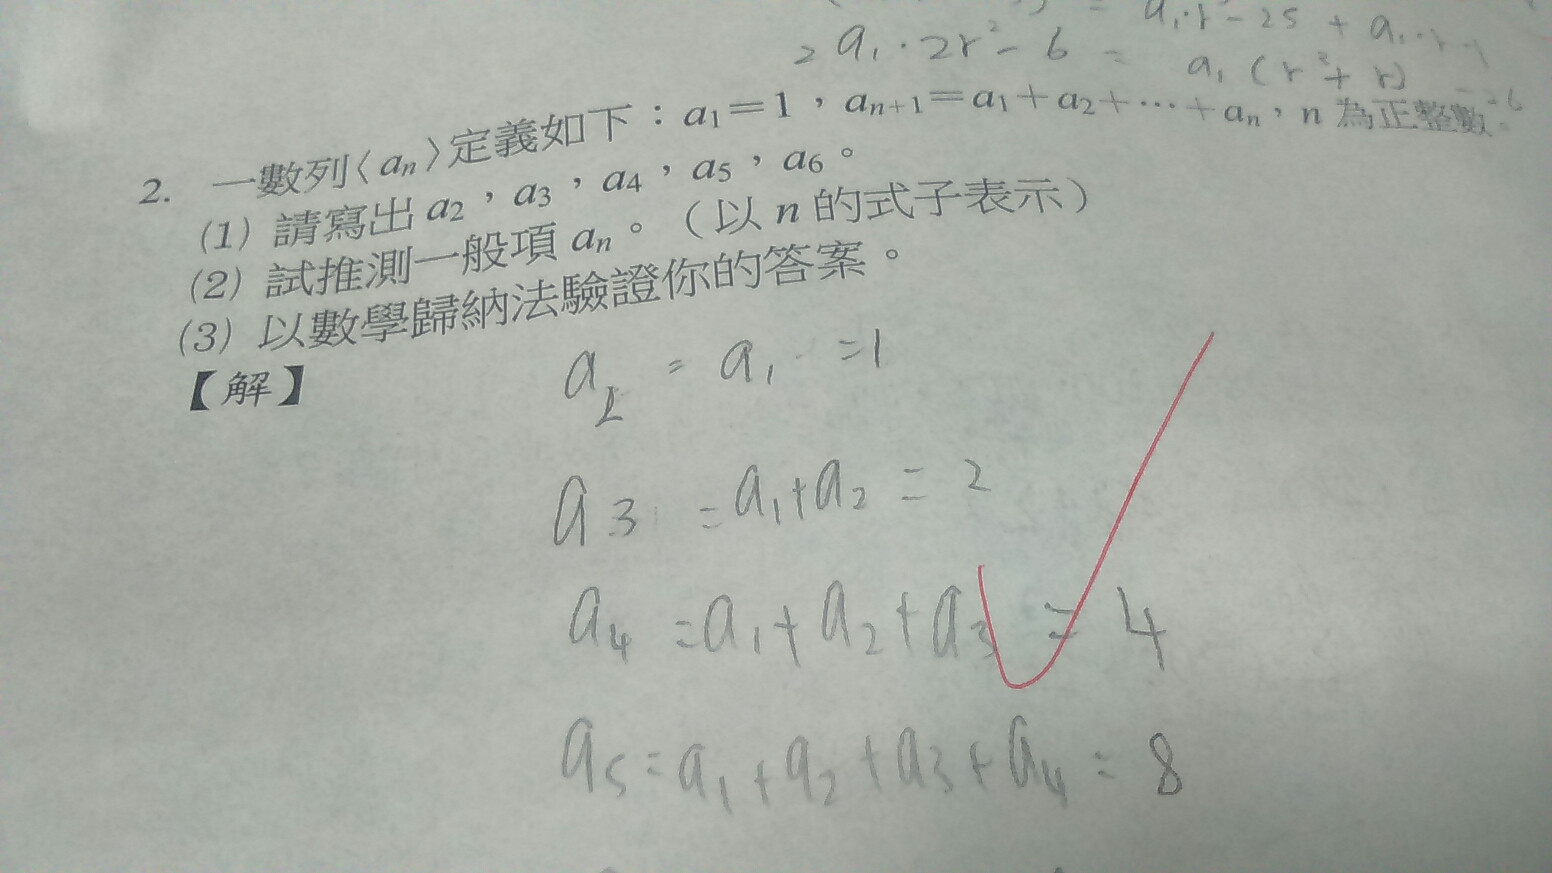 = a₁·r²-25 + a₁·r
2 a₁·2r²-6 = a₁(r²+r)
2. 一數列〈aₙ〉定義如下：a₁=1，aₙ₊₁=a₁+a₂+⋯+aₙ，n 為正整數。
(1) 請寫出 a₂，a₃，a₄，a₅，a₆。
(2) 試推測一般項 aₙ。（以 n 的式子表示）
(3) 以數學歸納法驗證你的答案。
【解】
a₂ = a₁ =1
a₃ = a₁+a₂ = 2
a₄ = a₁+a₂+a₃ = 4
a₅ = a₁+a₂+a₃+a₄ = 8